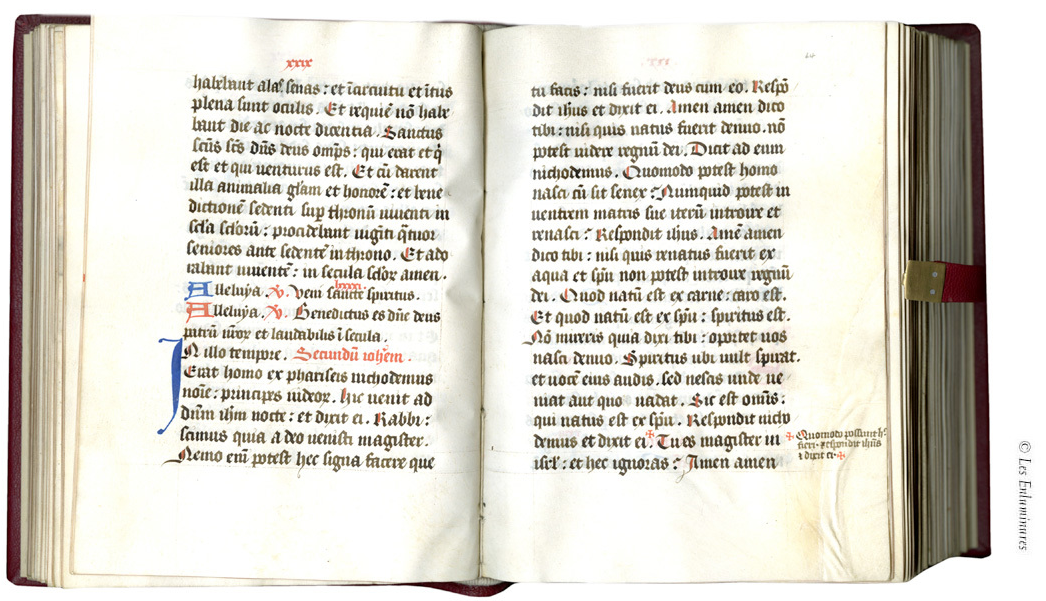 xxix
habebant alas senas : et ĩ circuitu et ĩtus
plena sunt oculis . Et requiẽ nõ habe
bant die ac nocte dicentia . Sanctus
scũs scs dñs deus omps : qui erat et q̃
est et qui uenturus est . Et cũ darent
illa animalia głam et honorẽ : et bene
dictionẽ sedenti sup thronũ uiuenti in
scła scłorũ : procidebant uiginti q̃tuor
seniores ante sedentẽ in throno . Et ado
rabant uiuentẽ : in secula scłor amen .
Alleluya . V . Veni sancte spiritus .
lxxxi
Alleluya . V . Benedictus es dñe deus
patrũ nror et laudabilis ĩ secula .
In illo tempore . Secundũ iohẽm .
Erat homo ex phariseis nichodemus
noĩe : princeps iudeoꝝ . hic uenit ad
dñum ihm nocte : et dixit ei . Rabbi :
scimus quia a deo uenisti magister .
Nemo em̃ potest hec signa facere que
xxx
tu facis : nisi fuerit deus cum eo . Respõ
dit ihus et dixit ei . Amen amen dico
tibi : nisi quis natus fuerit denuo . nõ
potest uidere regnũ dei . Dicit ad eum
nichodemus . Quomodo potest homo
nasci cũ sit senex ? Numquid potest in
uentrem matris sue iterũ introire et
renasci ? Respondit ihus . Amẽ amen
dico tibi : nisi quis renatus fuerit ex
aqua et spũ non potest introire regnũ
dei . Quod natũ est ex carne : caro est .
Et quod natũ est ex spũ : spiritus est .
Nõ mireris quia dixi tibi : oportet uos
nasci denuo . Spiritus ubi uult spirat .
et uocẽ eius audis . sed nescis unde ue
niat aut quo uadat . Sic est omĩs :
qui natus est ex spũ . Respondit nicho
demus et dixit ei . Tu es magister in
isrł : et hec ignoras ? Amen amen
Quomodo possunt h
fieri . Respondit ihus
⁊ dixit ei .
© Les Enluminures